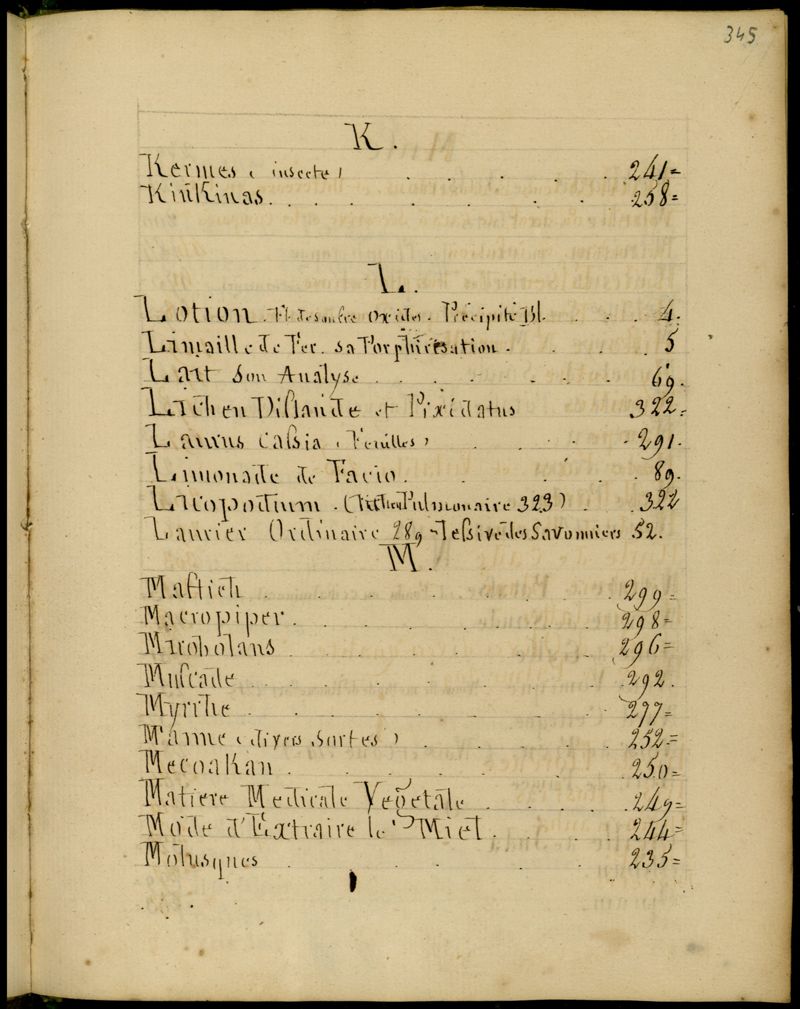 345
K.
Kermes ( insecte ) . . . . . 241=
KinKinas. . . . . . . . . 258=
L.
Lotion. Et des oxides. Précipité Bl. . . . 4.
Limaille de Fer. sa Porphirisation . . . . 5
Lait Son Analyse . . . . . . 69.
Lichen Dislande et Pixidatus 322=
Laurus Cassia ( Feuilles ) . . . . 291.
Limonade de Facio . . . . . 89.
Licopodium . ( Pulmonaire 323 ) . 322
Laurier Ordinaire 289 - Lessive des Savonniers 52.
M.
Mastich . . . . . . . 299=
Macropiper . . . . . . 298=
Mirobolans . . . . . . 296=
Muscade . . . . . . . 292.
Myrrhe . . . . . . . 277=
Manne ( divers Sortes ) . . . . 252=
MecoaKan . . . . . . 250=
Matiere Medicale Vegetale . . . . 249=
Mode d'Extraire le Miel . . . . 244=
Molusques . . . . . 235=